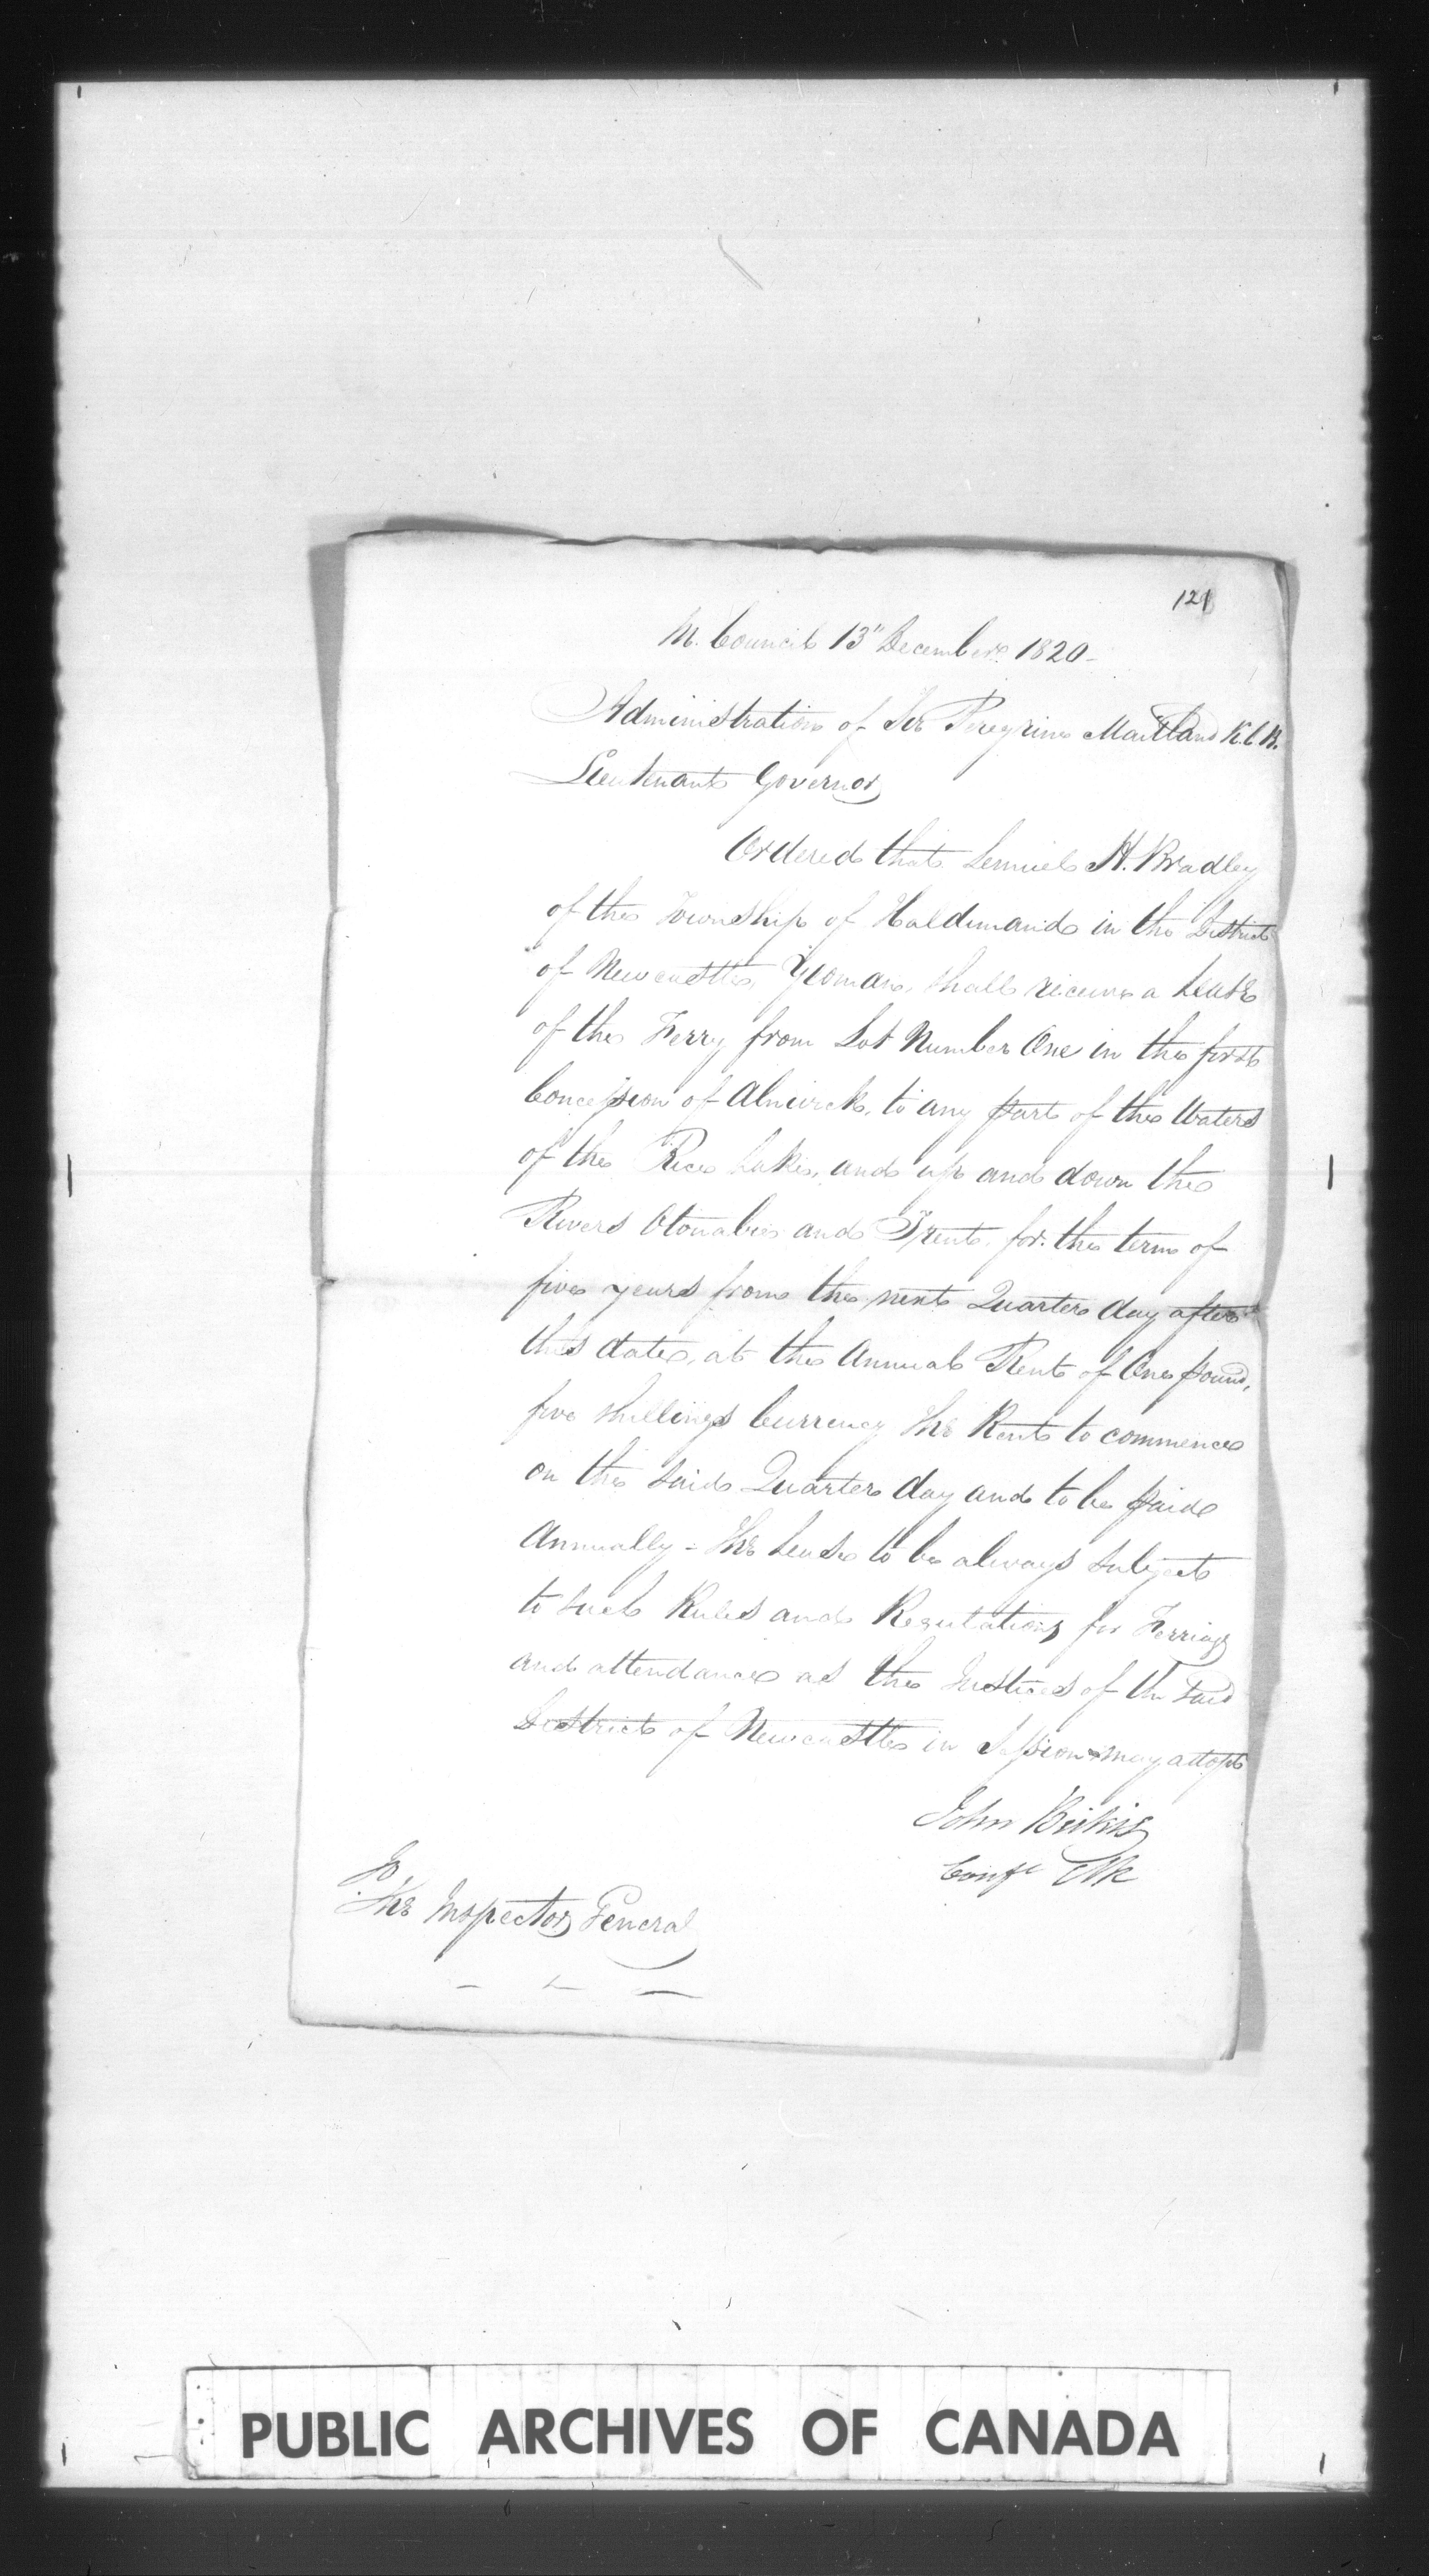 121
In Council 13" December 1820 -
Administration of Sir Peregrine Maitland K.C.B.
Lieutenant Governor
Ordered that Lemuel H. Bradley
of the Township of Haldimand in the District
of Newcastle, Yeoman, shall receive a Lease
of the Ferry from Lot Number One in the first
Concession of Alnwick, to any part of the Waters
of the Rice Lake, and up and down the
Rivers Otonabie and Trent, for the term of
five years from the next Quarter day after
this date, at the Annual Rent of One pound,
five shillings Currency The Rent to commence
on the said Quarter day and to be paid
Annually - The Lease to be always subject
to such Rules and Regulations for Ferriage
and attendance as the Justices of the said
District of Newcastle in Session may adopt
John Beikie
Clk
To,
The Inspector General
PUBLIC ARCHIVES OF CANADA